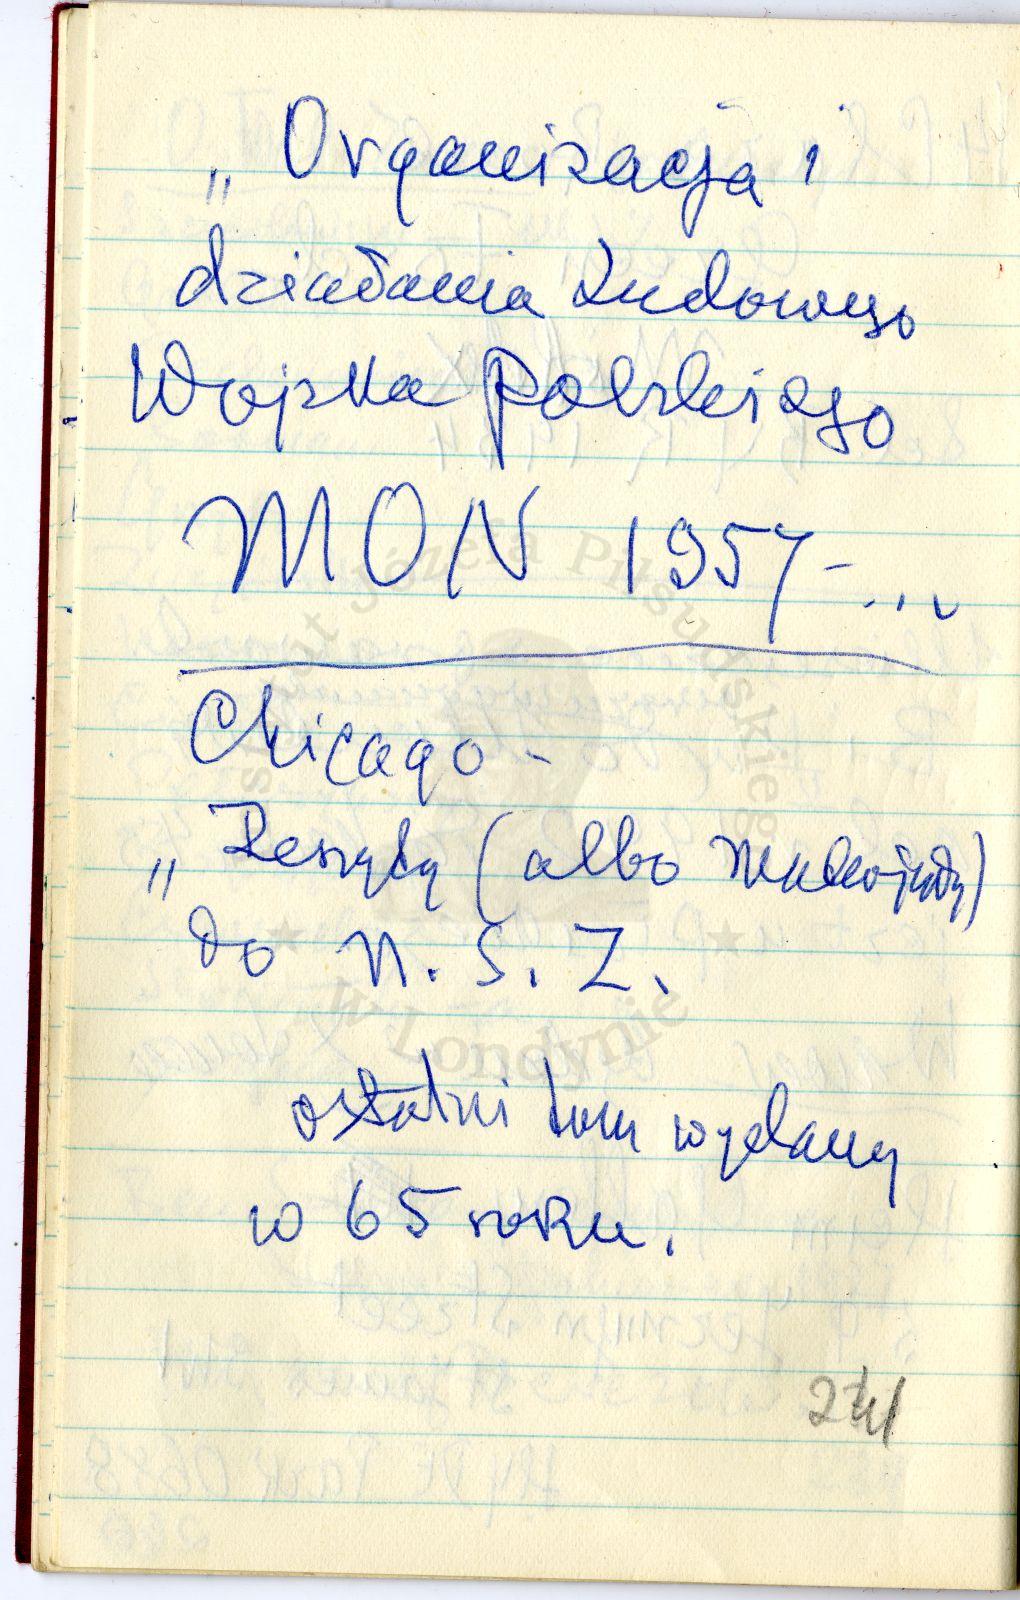 „Organizacja i
działania Ludowego
Wojska Polskiego
MON 1957-...
Chicago -
„Zeszyty (albo Materiały)
do N.S.Z.
ostatni tom wydany
w 65 roku.
Instytut Józefa Piłsudskiego
w Londynie